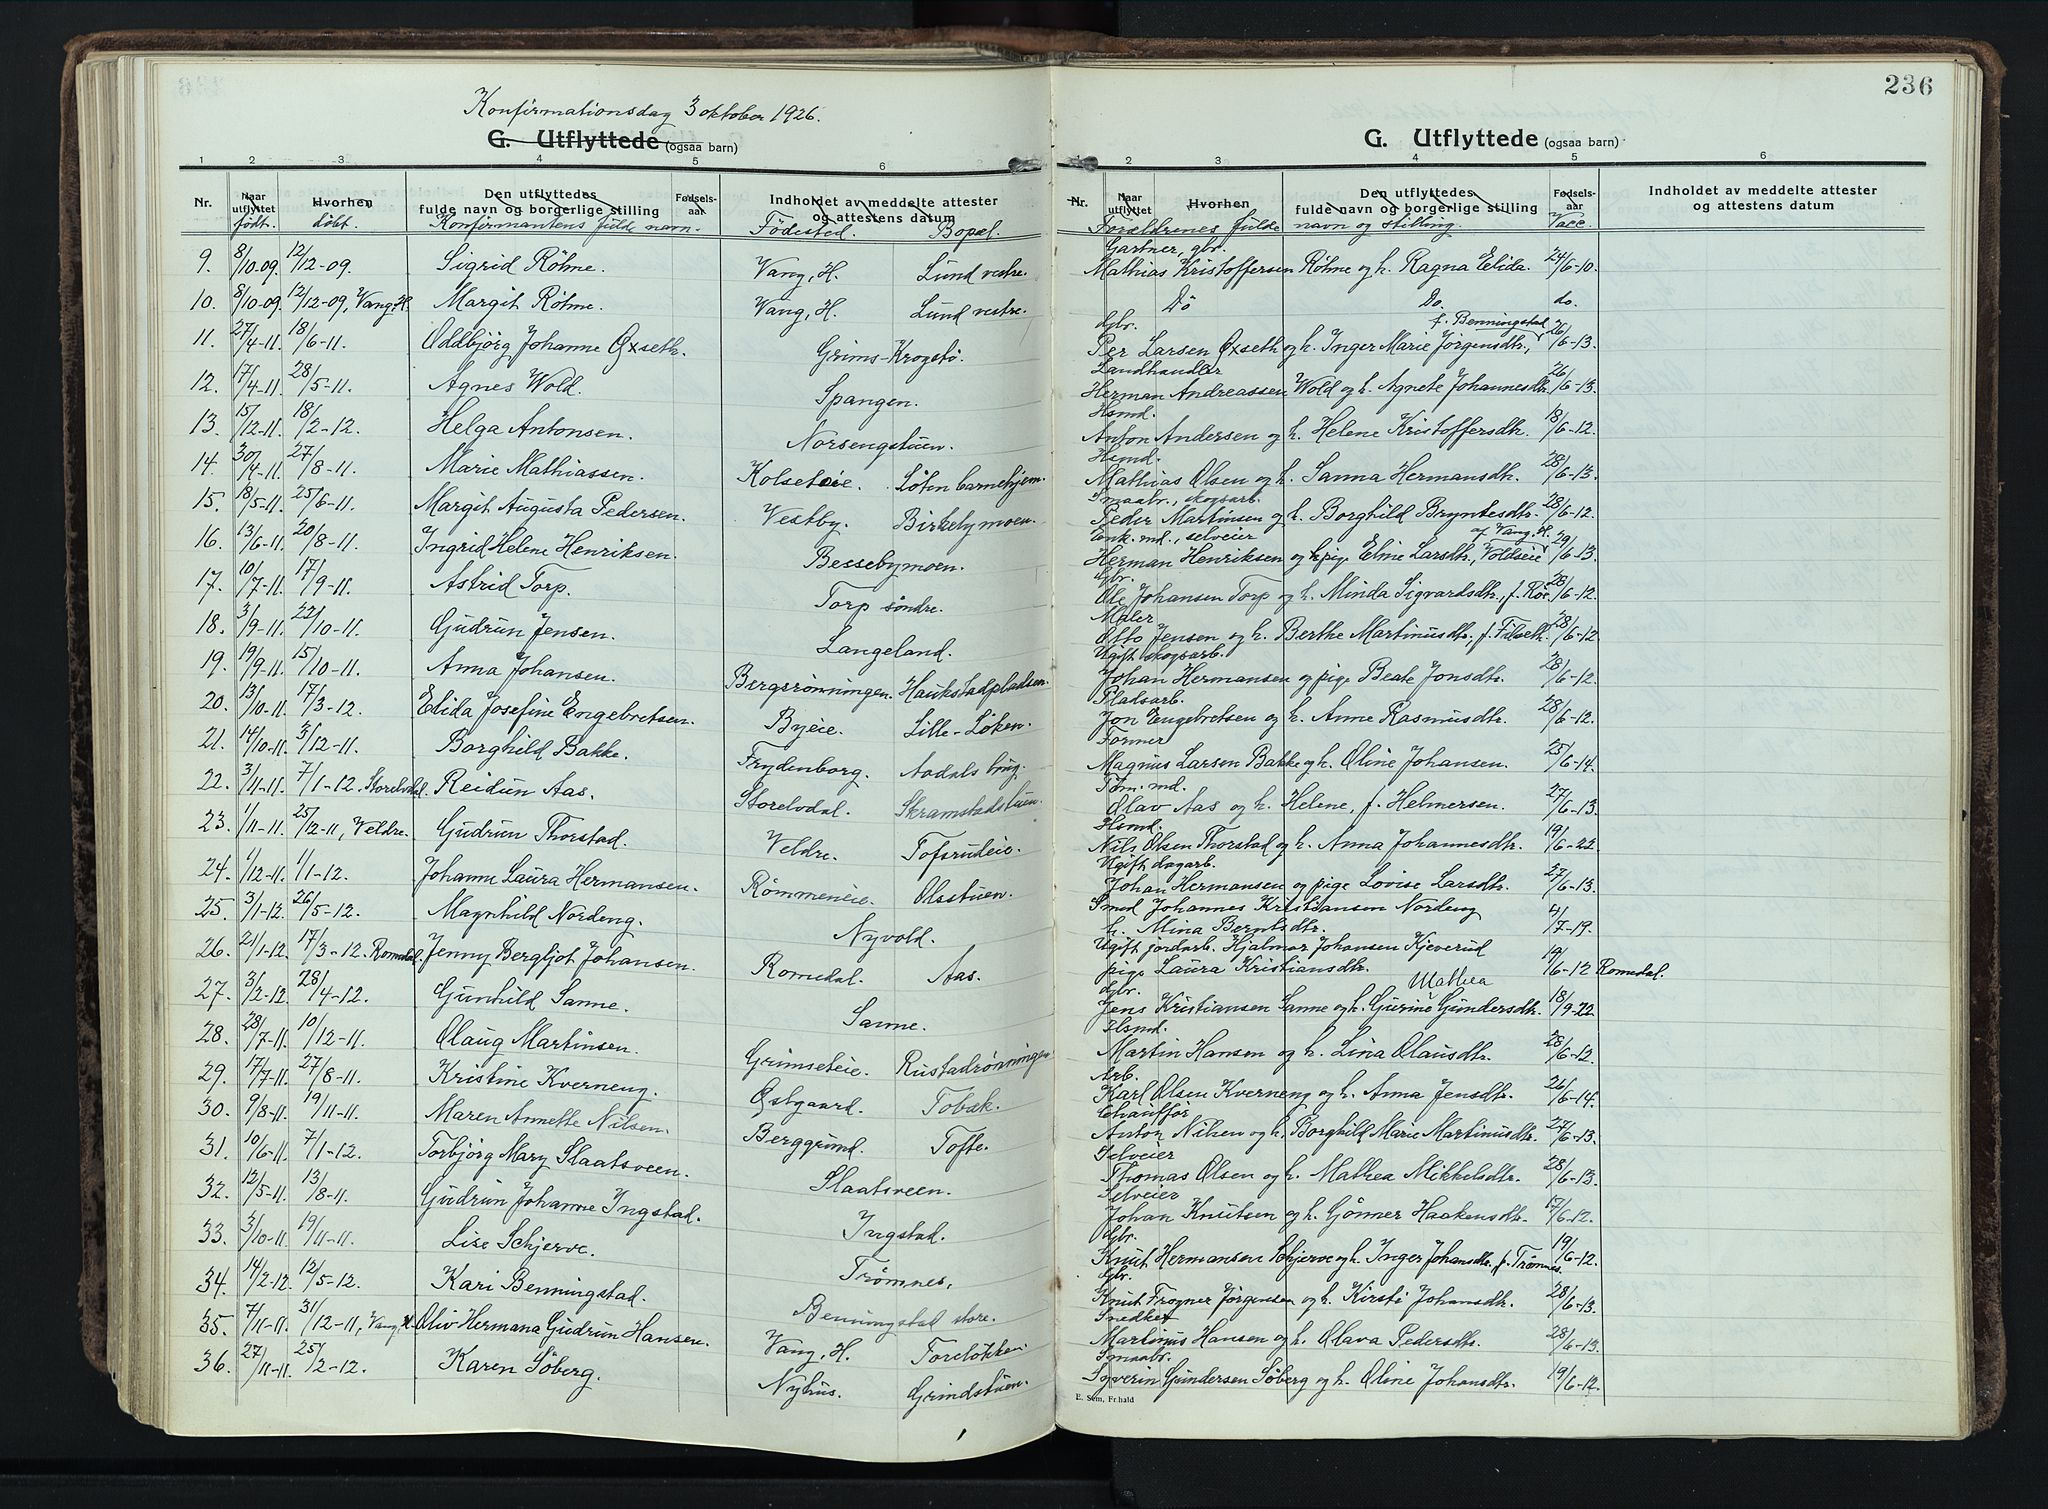 236
Konfirmationsdag 3 oktober 1926.
G. Utflyttede (ogsaa barn)
1 2 3 4 5 6
Nr. Naar utflyttet Hvorhen Den utflyttedes fulde navn og borgerlige stilling Fødsels-aar Indholdet av meddelte attester og attestens datum
født. döbt. Konfirmantens fulde navn. Födested. Bopæl.
9. 8/10-09. 12/12-09. Sigrid Röhne. Vang, H. Lund vestre.
10. 8/10-09. 12/12-09, Vang, H. Margit Röhne. Vang, H. Lund vestre.
11. 27/4-11. 18/6-11. Oddbjörg Johanne Oxseth. Grims-Krogstö.
12. 17/4-11. 28/5-11. Agnes Wold. Spangen.
13. 15/12-11. 18/2-12. Helga Antonsen. Norsengstuen.
14. 30/4-11. 27/8-11. Marie Mathiassen. Kolseteie. Löten barnehjem.
15. 18/5-11. 25/6-11. Margit Augusta Pedersen. Vestby. Birkebymoen.
16. 13/6-11. 20/8-11. Ingrid Helene Henriksen. Bessebymoen.
17. 10/7-11. 17/9-11. Astrid Torp. Torp söndre.
18. 3/9-11. 22/10-11. Gudrun Jensen. Langeland.
19. 19/9-11. 15/10-11. Anna Johansen. Bergsrönningen. Haukstadpladsen.
20. 13/10-11. 17/3-12. Elida Josefine Engebretsen. Byeie. Lille-Löken.
21. 14/10-11. 3/12-11. Borghild Bakke. Frydenborg. Aadals brug.
22. 3/11-11. 7/1-12. Storelvdal. Reidun Aas. Storelvdal. Skramstadstuen.
23. 1/11-11. 25/12-11, Veldre. Gudrun Thorstad. Veldre. Tofsrudeie.
24. 1/12-11. 1/1-12. Johanne Laura Hermansen. Römmeneie. Olsstuen.
25. 3/1-12. 26/5-12. Magnhild Nordeng. Nyvold.
26. 21/1-12. 17/3-12. Romedal. Jenny Bergljot Johansen. Romedal. Aas.
27. 3/2-12. 28/4-12. Gunhild Sanne. Sanne.
28. 28/7-11. 10/12-11. Olaug Martinsen. Grimseteie. Rustadrönningen.
29. 17/7-11. 27/8-11. Kristine Kverneng. Østgaard. Tobæk.
30. 9/8-11. 19/11-11. Maren Annette Nilsen. Berggrund. Tofte.
31. 10/6-11. 7/1-12. Torbjörg Mary Slaatsveen. Slaatsveen.
32. 12/5-11. 13/8-11. Gudrun Johanne Ingstad. Ingstad.
33. 3/10-11. 19/11-11. Lise Schjerve. Trømnes.
34. 14/2-12. 12/5-12. Kari Benningstad. Benningstad store.
35. 7/11-11. 31/12-11, Vang, H. Oliv Hermana Gudrun Hansen. Vang, H. Torelökken.
36. 27/11-11. 25/2-12. Karen Söberg. Nyhus. Grindstuen.
G. Utflyttede (ogsaa barn)
1 2 3 4 5 6
Nr. Naar utflyttet Hvorhen Den utflyttedes fulde navn og borgerlige stilling Fødsels-aar Indholdet av meddelte attester og attestens datum
Forældrenes fulde navn og stilling. Vacc.
Gartner, gbr.
Mathias Kristoffersen Röhne og h. Ragna Elida. 24/6-10.
Dö Do. do.
Gbr. f. Benningstad
Per Larsen Oxseth og h. Inger Marie Jørgensdtr., 26/6-13.
Landhandler
Herman Andreassen Wold og h. Agnete Johannesdtr. 26/6-13.
Hsmd.
Anton Andersen og h. Helene Kristoffersdtr. 18/6-12.
Hsmd.
Mathias Olsen og h. Sanna Hermansdtr. 28/6-13.
Smaabr., skogsarb.
Peder Martinsen og h. Borghild Bryntesdtr. 28/6-12.
Enk. md., selveier af Vang, H.
Herman Henriksen og pige Eline Larsdtr., Voldseie 29/6-13.
Gbr.
Ole Johansen Torp og h. Minda Sigvardsdtr., f. Rör. 28/6-12.
Maler
Otto Jensen og h. Berthe Martinusdtr., f. Filseth. 28/6-12.
Ugift skogsarb.
Johan Hermansen og pige Beate Jonsdtr. 28/6-12.
Pladsarb.
Jon Engebretsen og h. Anne Rasmusdtr. 28/6-12.
Former
Magnus Larsen Bakke og h. Oline Johansen. 25/6-14.
Töm. md.
Olav Aas og h. Helene, f. Helmersen. 27/6-13.
Hsmd.
Nils Olsen Thorstad og h. Anna Johannesdtr. 19/6-22.
Ugift dagarb.
Johan Hermansen og pige Lovise Larsdtr. 27/6-13.
Smed Johannes Kristiansen Nordeng
h. Mina Berntsdtr. 4/7-19.
Ugift jordarb. Hjalmar Johansen Kjeverud
pige Laura Kristiansdtr. 19/6-12 Romedal.
Gbr. Mathea
Jens Kristiansen Sanne og h. Gurine Gundersdtr. 18/9-22
Hsmd.
Martin Hansen og h. Lina Olausdtr. 28/6-12.
Arb.
Karl Olsen Kverneng og h. Anna Jensdtr. 26/6-14.
Chauffør
Anton Nilsen og h. Borghild Marie Martinusdtr. 27/6-13.
Selveier
Thomas Olsen og h. Mathea Mikkelsdtr. 28/6-13.
Selveier
Johan Knutsen og h. Gönner Haakensdtr. 17/6-12.
Gbr.
Knut Hermansen Schjerve og h. Inger Johansdtr. f. Trömnes. 19/6-12.
Gbr.
Knut Frogner Jørgensen og h. Kirsti Johansdtr. 28/6-13.
Snedker
Martinus Hansen og h. Olava Pedersdtr. 28/6-13.
Smaabr.
Syverin Gundersen Söberg og h. Oline Johansdtr. 19/6-12.
E. Sem, Fr.hald